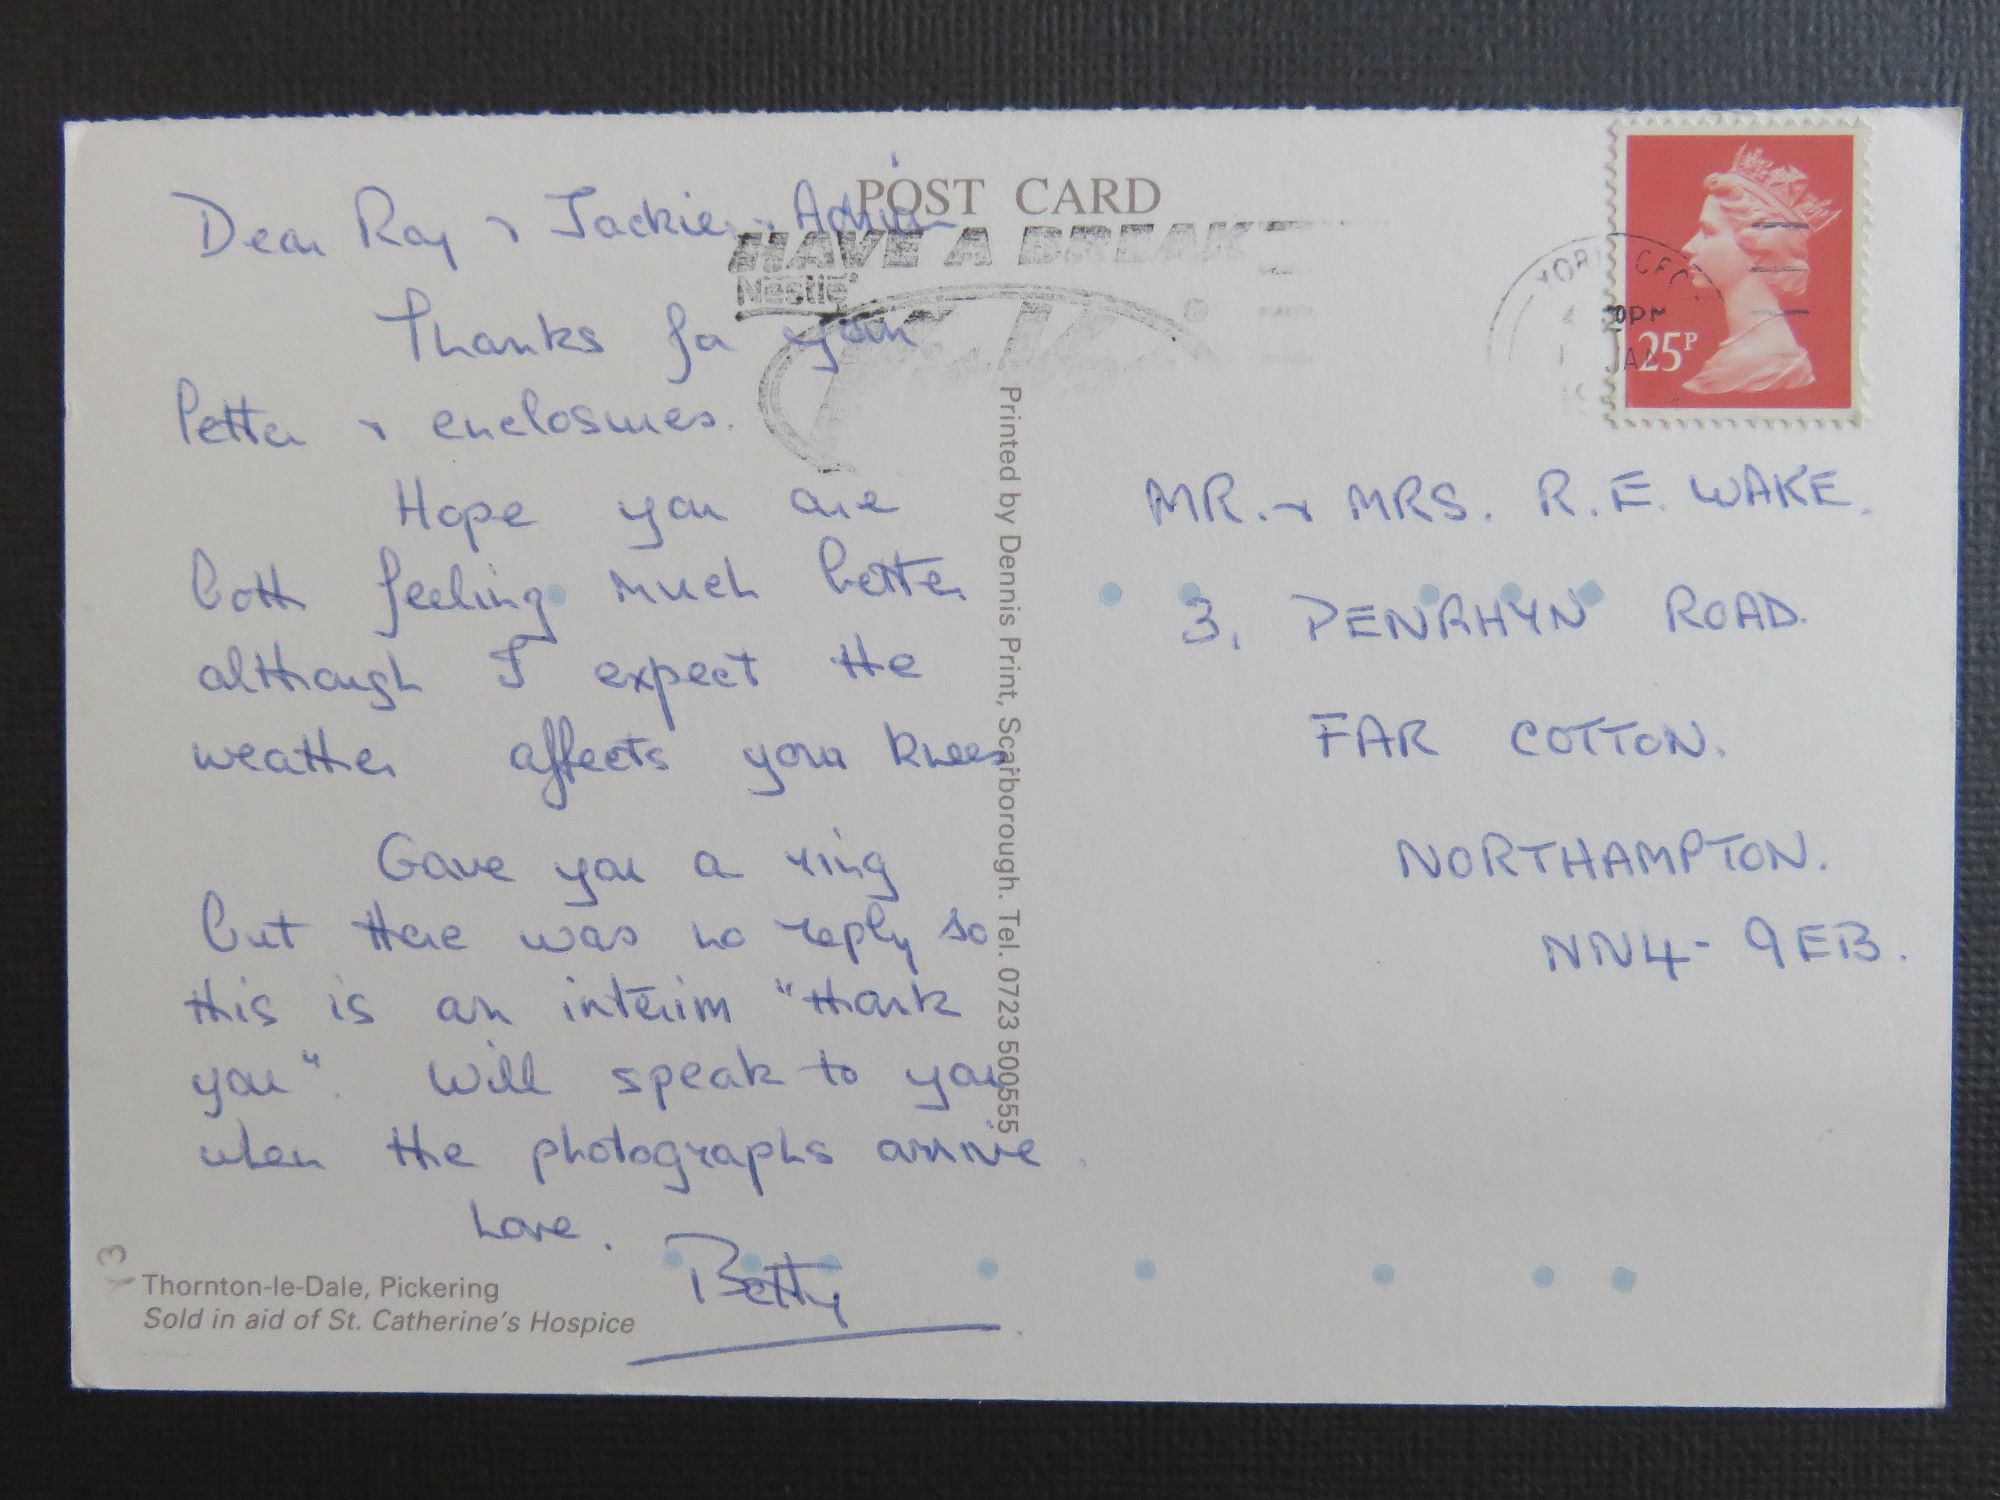 POST CARD
HAVE A BREAK
Nestlé
YORK CFC
30PM
JAN
25P
Dear Ray & Jackie & Adrian
Thanks for your
letter & enclosures.
Hope you are
both feeling much better
although I expect the
weather affects your knees.
Gave you a ring
but there was no reply so
this is an interim "thank
you". Will speak to you
when the photographs arrive.
Love.
Betty
Printed by Dennis Print, Scarborough. Tel. 0723 500555
MR. & MRS. R. E. WAKE.
3, PENRHYN ROAD.
FAR COTTON.
NORTHAMPTON.
NN4- 9EB.
Thornton-le-Dale, Pickering
Sold in aid of St. Catherine's Hospice